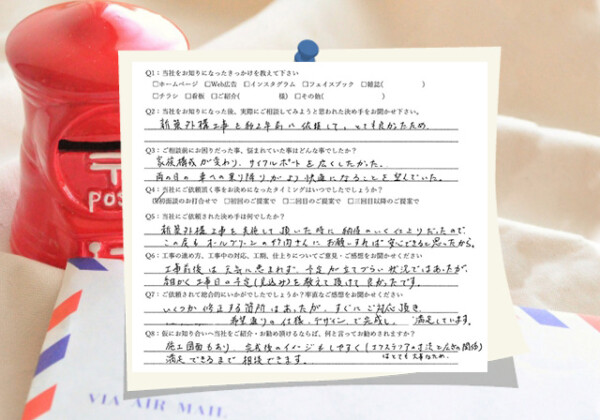 Q1：当社をお知りになったきっかけを教えて下さい
□ホームページ □Web広告 □インスタグラム □フェイスブック □雑誌( )
□チラシ □看板 □ご紹介( 様) □その他( )
Q2：当社をお知りになった後、実際にご相談してみようと思われた決め手をお聞かせ下さい。
新築外構工事を約2年前に依頼して、とても良かったため
Q3：ご相談前にお困りだった事、悩まれていた事はどんな事でしたか？
家族構成が変わり、サイクルポートを広くしたかった。
雨の日の車への乗り降りがより快適になることを望んでいた。
Q4：当社にご依頼頂く事をお決めになったタイミングはいつでしたでしょうか？
初回面談のお打合せで □初回のご提案で □二回目のご提案で □三回目以降のご提案で
Q5：当社にご依頼された決め手は何でしたか？
新築外構工事を実施して頂いた時に納得のいく仕上りだったので、
この度も オールグリーンの竹内さんに お願いすれば安心できると思ったから。
Q6：工事の進め方、工事中の対応、工期、仕上りについてご意見・ご感想をお聞かせください
工事前後は天気に恵まれず、予定が立てづらい状況ではあったが、
細かく工事日の予定(見込み)を教えて頂けて良かったです。
Q7：ご依頼されて総合的にいかがでしたでしょうか？率直なご感想をお聞かせください
いくつか修正する箇所はあったが、すぐにご対応頂き
希望通りの仕様、デザインで完成し、満足しています。
Q8：仮にお知り合いへ当社をご紹介・お勧め頂けるならば、何と言ってお勧めされますか？
施工図面もあり、完成後のイメージもしやすく(エクステリアの寸法と広さの関係)
はとても大事なため、
満足できるまで相談できます。
POS
VIA AIR MAIL